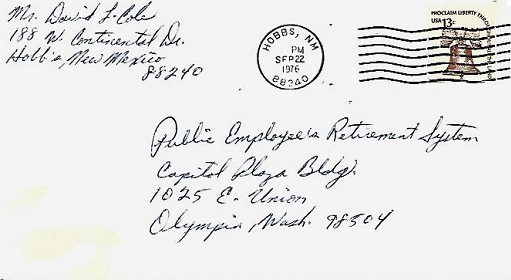 Mr. David L. Cole
188 W. Continental Dr.
Hobbs, New Mexico
88240
HOBBS, NM
PM
SEP 22
1976
88240
PROCLAIM LIBERTY THROUGHOUT
USA 13c
Public Employee's Retirement System
Capitol Plaza Bldg.
1025 E. Union
Olympia, Wash. 98504